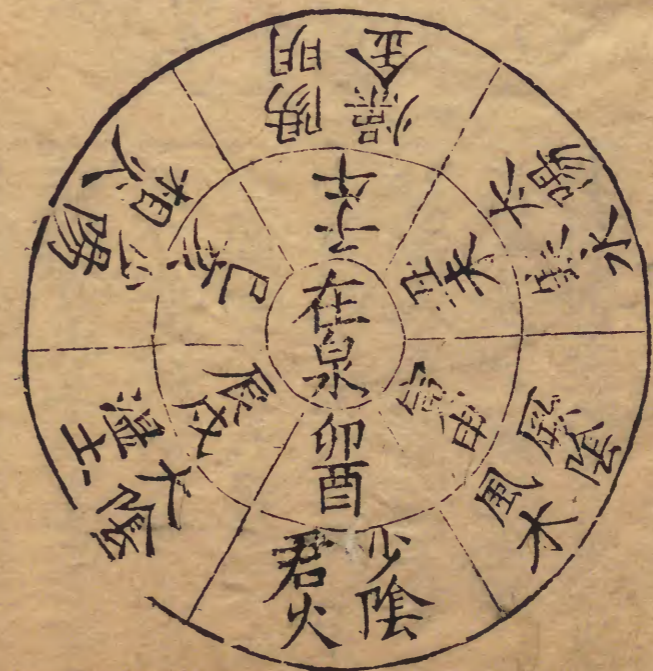 在泉
子午
丑未
寅申
卯酉
辰戌
巳亥
陽明
燥金
太陽
寒水
厥陰
風木
少陰
君火
太陰
濕土
少陽
相火